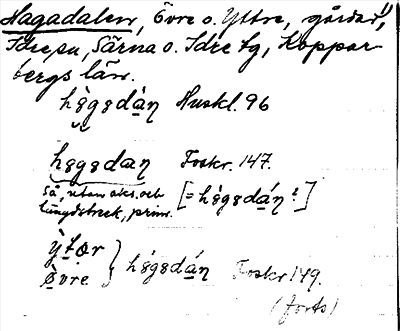 Hagadalen, Övre o. Yttre, gårdar,
Idre sn, Särna o. Idre tg, Koppar-
bergs län.
hɛ̀gɛdàn Huskl. 96
hɛgɛdan Foskr. 147.
Så, utan aks. och
längdstreck, prim. [= hɛ̀gɛdán?]
ỳtər
ø̀vre } hɛ́gɛdán Foskr 149.
(forts)